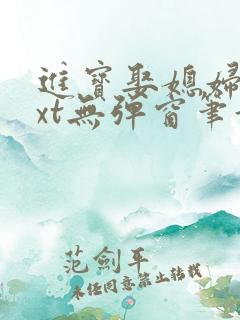 進寶娶媳婦
xt無彈窗筆
范劍平
未经同意禁止转载